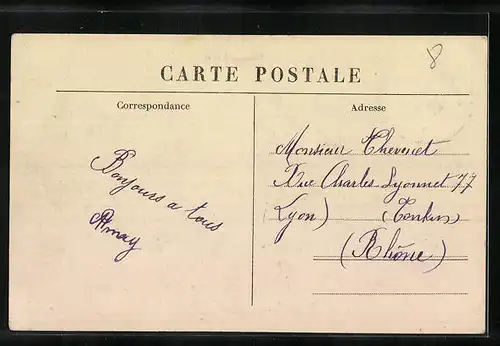 8
CARTE POSTALE
Correspondance
Adresse
Bonjours a tous
Monsieur Thevenet
Rue Charles Lyonnet 77
Lyon) (Tonkin
(Rhône)